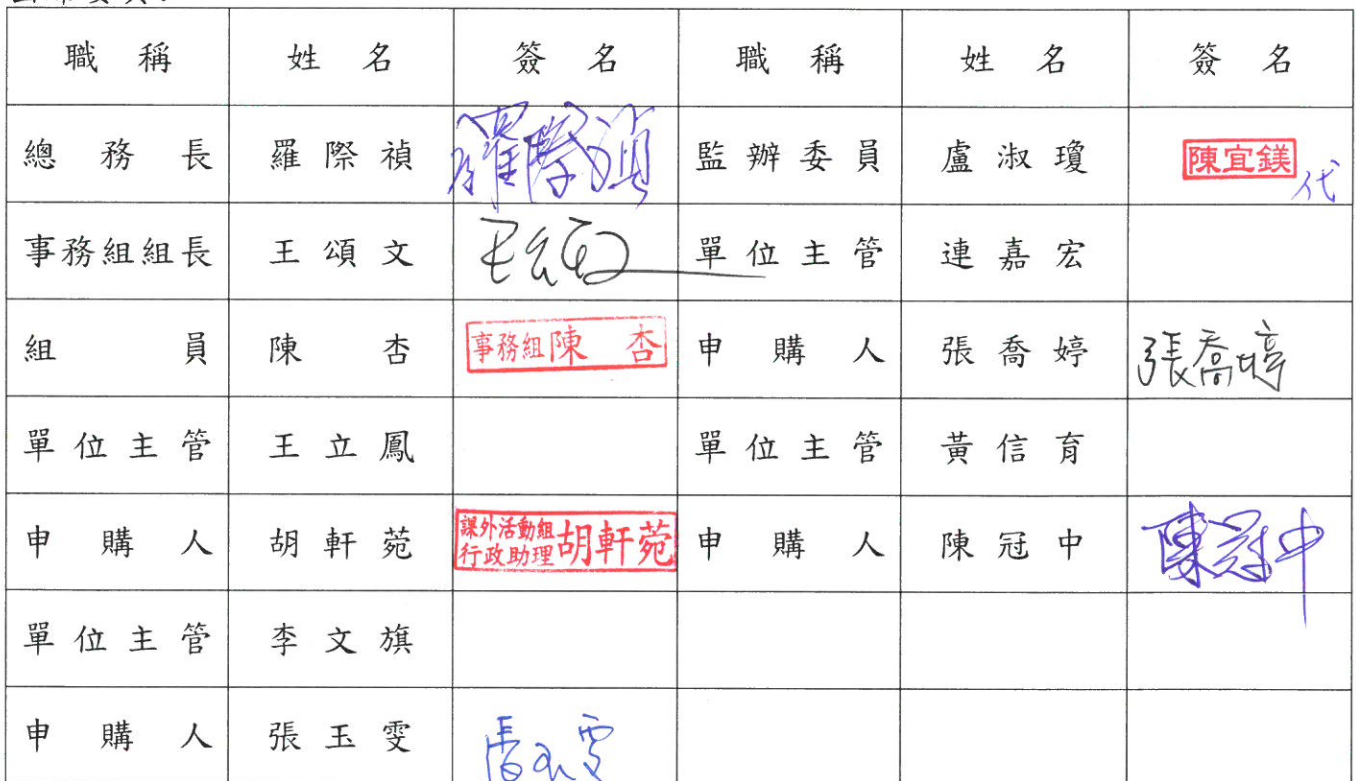 職稱 姓名 簽名 職稱 姓名 簽名
總務長 羅際禎 羅際禎 監辦委員 盧淑瓊 陳宜鎂 代
事務組組長 王頌文 單位主管 連嘉宏
組員 陳杏 事務組 陳杏 申購人 張喬婷 張喬婷
單位主管 王立鳳 單位主管 黃信育
申購人 胡軒菀 課外活動組 行政助理 胡軒菀 申購人 陳冠中 陳冠中
單位主管 李文旗
申購人 張玉雯 張玉雯